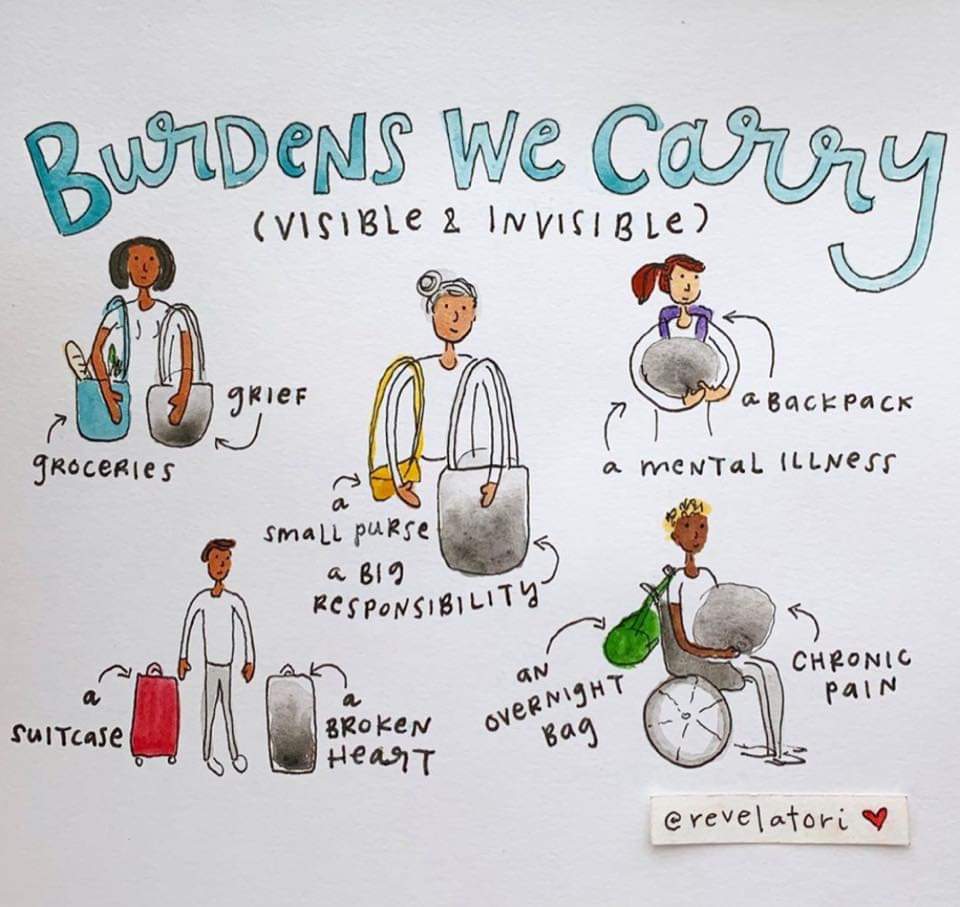 BURDENS WE CARRY
(VISIBLE & INVISIBLE)
GROCERIES
GRIEF
a
SMALL PURSE
a BIG
RESPONSIBILITY
a BACKPACK
a MENTAL ILLNESS
a
SUITCASE
a
BROKEN
HEART
AN
OVERNIGHT
BAG
CHRONIC
PAIN
@revelatori